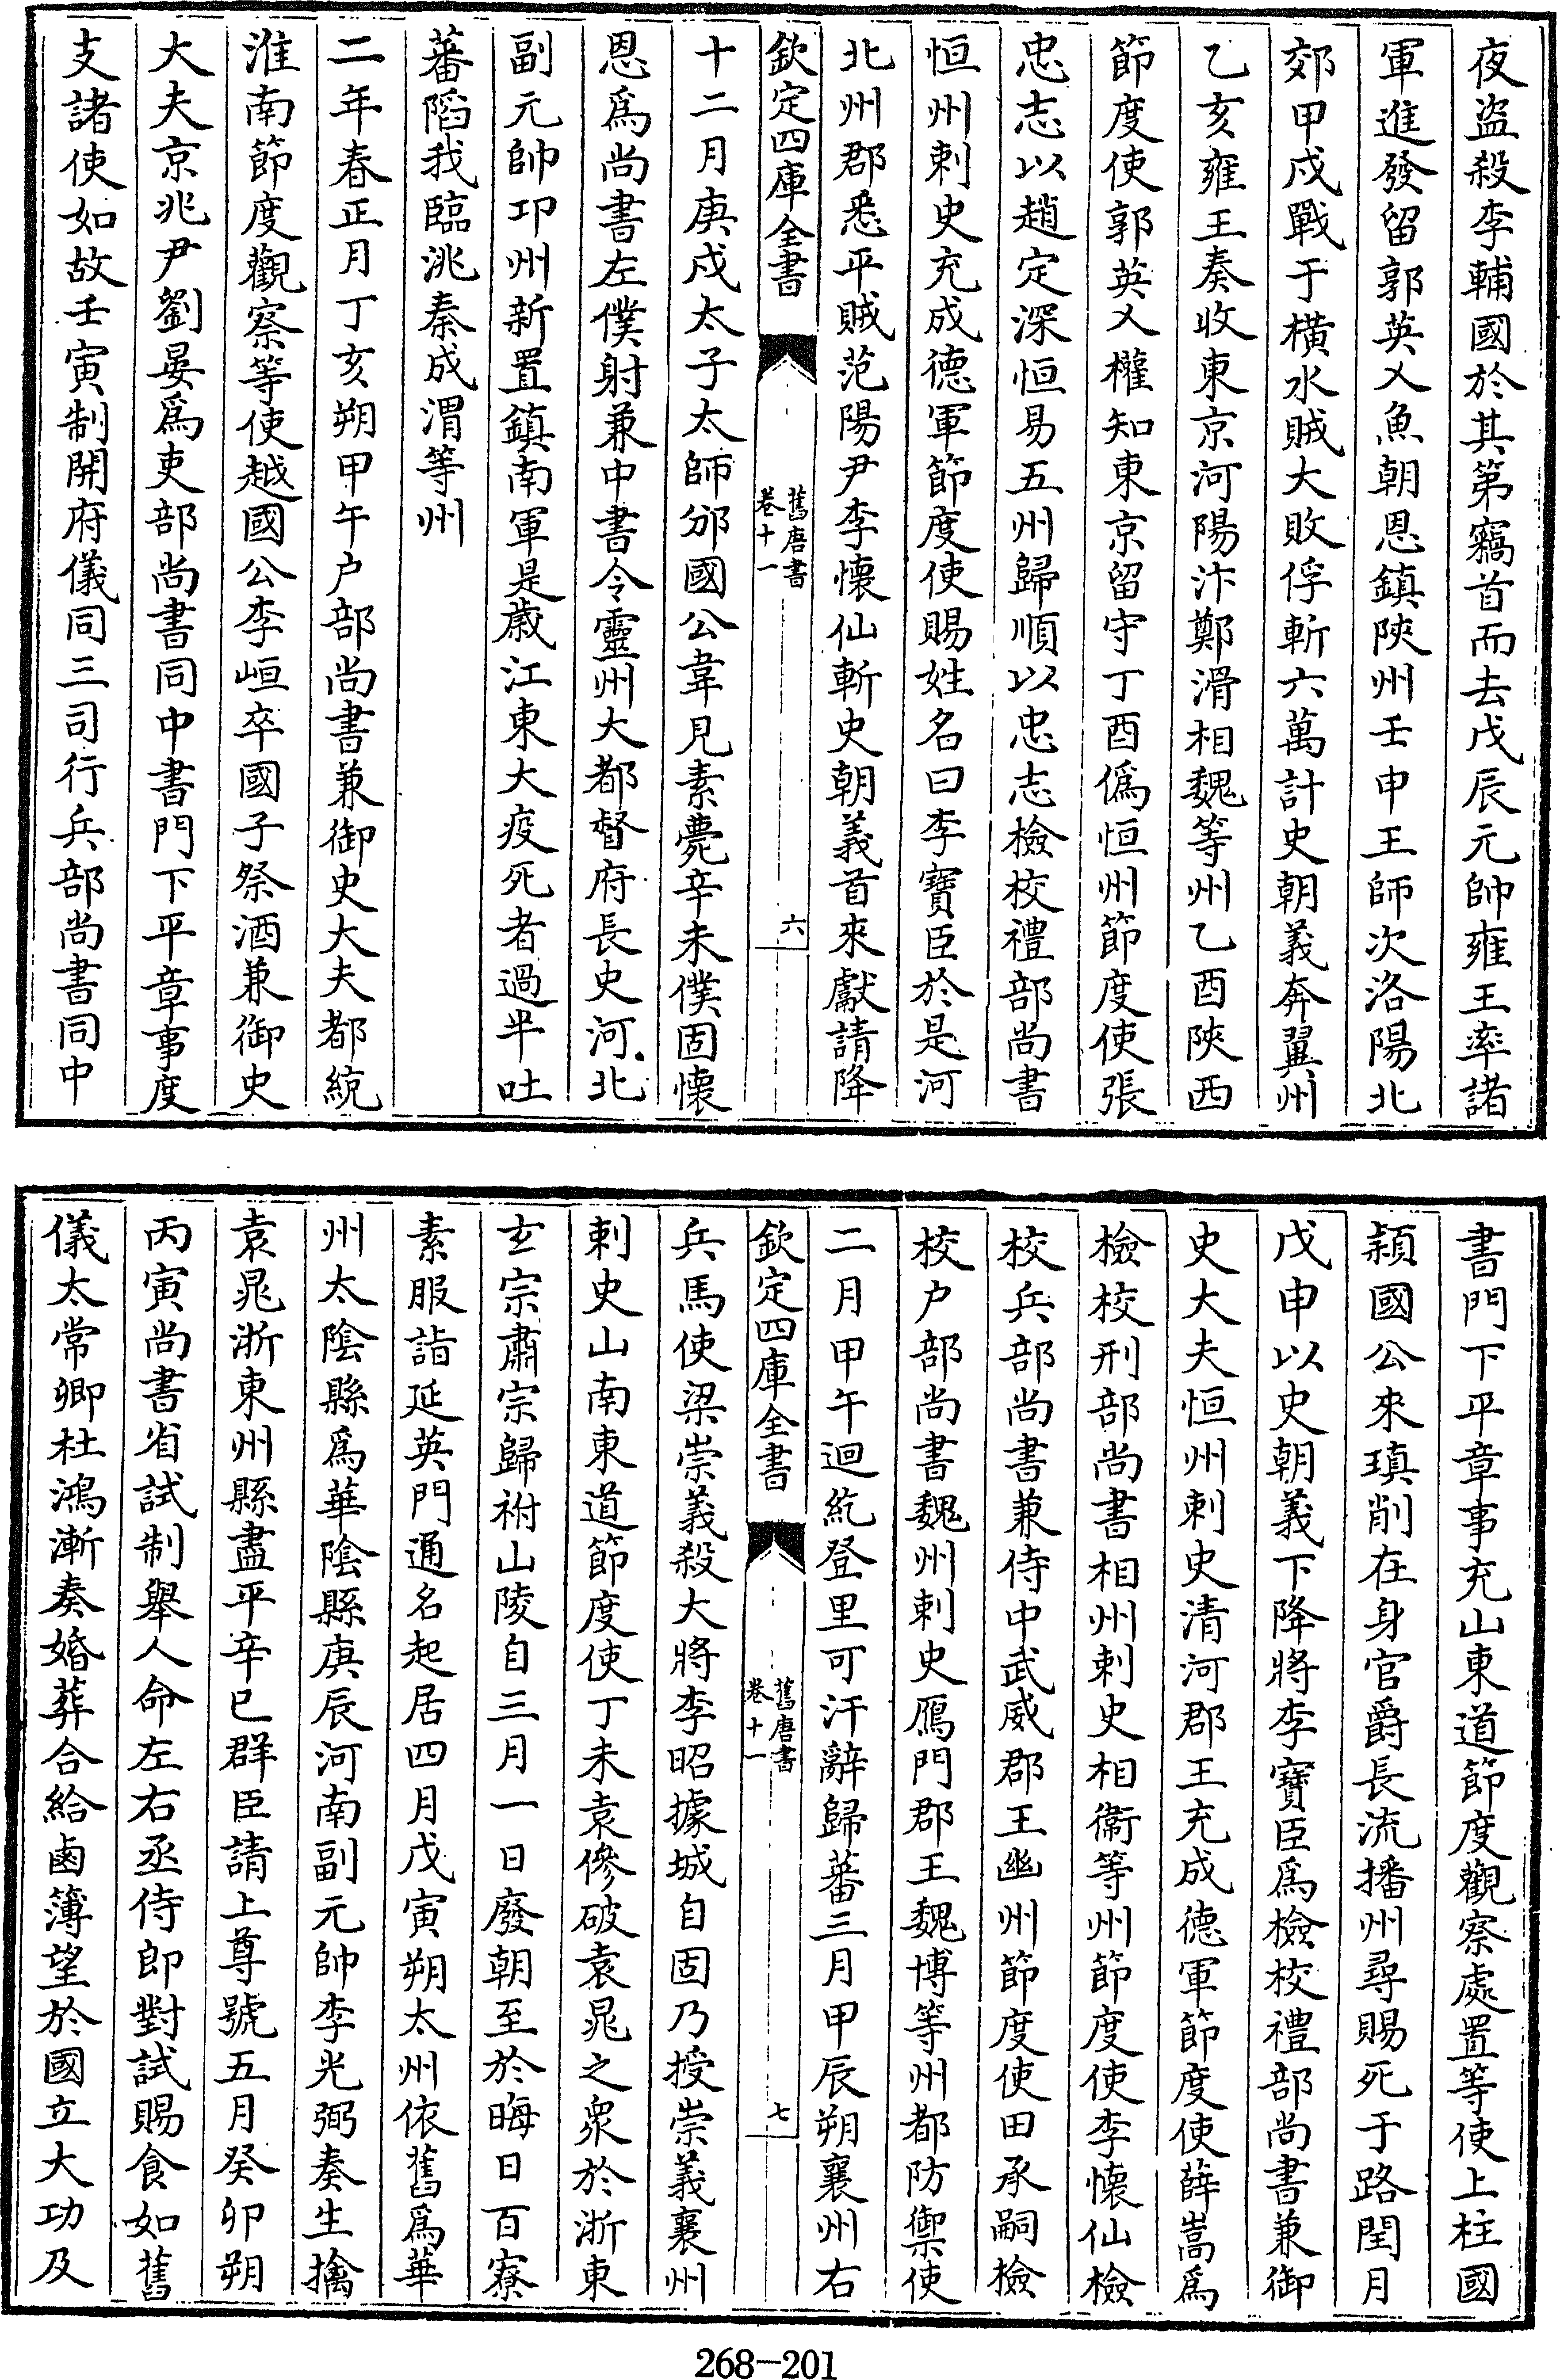 夜盜殺李輔國於其第竊首而去戊辰元帥雍王率諸
軍進發留郭英乂魚朝恩鎮陜州壬申王師次洛陽北
郊甲戍戰于橫水賊大敗俘斬六萬計史朝義奔冀州
乙亥雍王奏收東京河陽汴鄭滑相魏等州乙酉陜西
節度使郭英乂權知東京留守丁酉偽恒州節度使張
忠志以趙定深恒易五州歸順以忠志檢校禮部尚書
恒州刺史充成德軍節度使賜姓名曰李寶臣於是河
北州郡悉平賊范陽尹李懷仙斬史朝義首來獻請降
欽定四庫全書
舊唐書
卷十一
六
十二月庚戍太子太師邠國公韋見素薨辛未僕固懷
恩為尚書左僕射兼中書令靈州大都督府長史河北
副元帥卭州新置鎮南軍是歲江東大疫死者過半吐
蕃䧟我臨洮秦成渭等州
二年春正月丁亥朔甲午户部尚書兼御史大夫都統
淮南節度觀察等使越國公李峘卒國子祭酒兼御史
大夫京兆尹劉晏為吏部尚書同中書門下平章事度
支諸使如故壬寅制開府儀同三司行兵部尚書同中
書門下平章事充山東道節度觀察處置等使上柱國
潁國公來瑱削在身官爵長流播州尋賜死于路閏月
戊申以史朝義下降將李寶臣為檢校禮部尚書兼御
史大夫恒州刺史清河郡王充成德軍節度使薛嵩為
檢校刑部尚書相州刺史相衛等州節度使李懷仙檢
校兵部尚書兼侍中武威郡王幽州節度使田承嗣檢
校户部尚書魏州刺史鴈門郡王魏博等州都防禦使
二月甲午迴紇登里可汗辭歸蕃三月甲辰朔襄州右
欽定四庫全書
舊唐書
卷十一
七
兵馬使梁崇義殺大將李昭據城自固乃授崇義襄州
刺史山南東道節度使丁未袁傪破袁晁之衆於浙東
玄宗肅宗歸祔山陵自三月一日廢朝至於晦日百寮
素服詣延英門通名起居四月戊寅朔太州依舊為華
州太陰縣為華陰縣庚辰河南副元帥李光弼奏生擒
袁晁浙東州縣盡平辛巳群臣請上尊號五月癸卯朔
丙寅尚書省試制舉人命左右丞侍郎對試賜食如舊
儀太常卿杜鴻漸奏婚葬合給鹵簿望於國立大功及
268-201